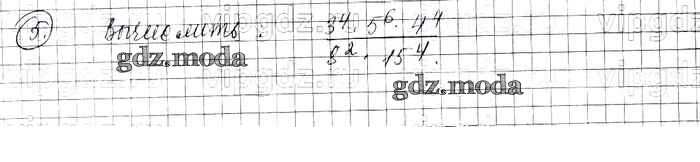 5. Вычислить: 3⁴· 5⁶· 4⁴
8²· 15⁴.
gdz.moda
gdz.moda